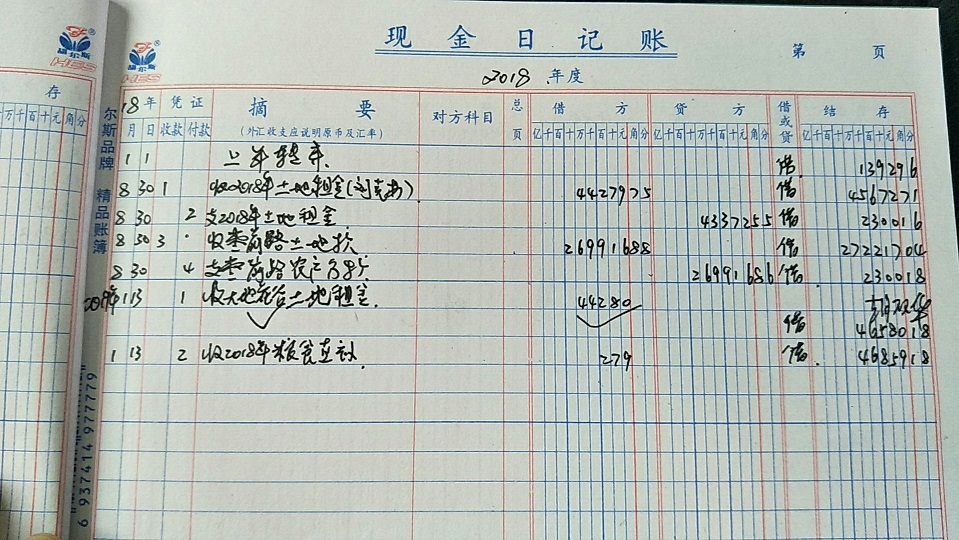 现金日记账
第 页
2018 年度
存
18 年 凭证 摘要 对方科目 总页 借方 贷方 借或贷 结存
月 日 收款 付款 (外汇收支应说明原币及汇率) 亿千百十万千百十元角分 亿千百十万千百十元角分 亿千百十万千百十元角分
1 1 上年转来 借 139296
8 30 1 收2018年土地租金 4427975 借 4567271
8 30 2 支2018年土地租金 4337255 借 230016
8 30 3 收枣前路土地款 26991688 借 27221704
8 30 4 支枣前路农户 26991686 借 230018
2019年 1 13 1 土地租金 44280
借 4658018
1 13 2 收2018年粮食直补 279 借 4685918
尔斯品牌 精品账簿
6 937414 977779
HES
HES